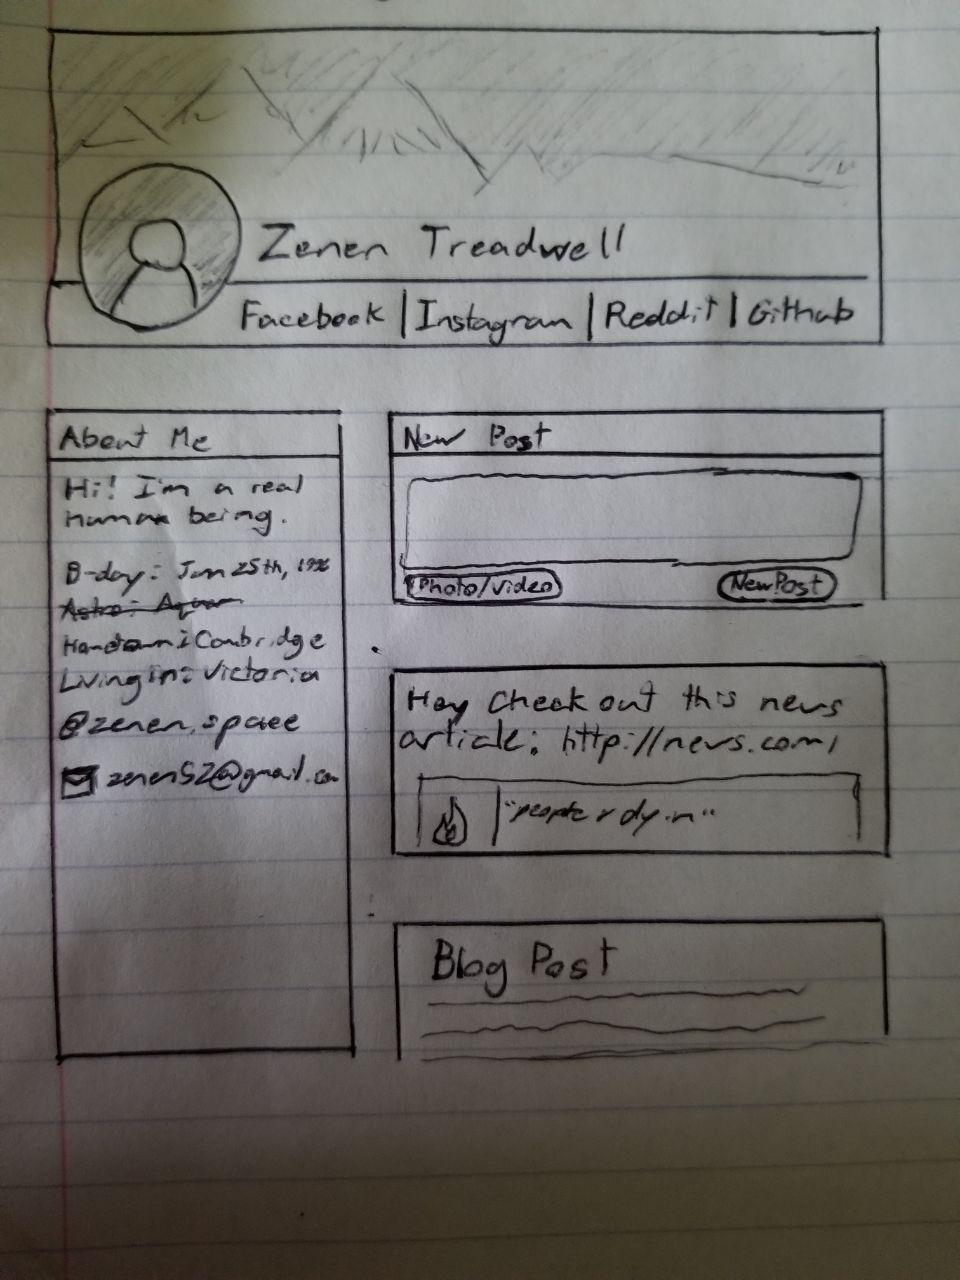 Zenen Treadwell
Facebook | Instagram | Reddit | Github
About Me
Hi! I'm a real
human being.
B-day: Jan 25th, 1996
Astro:
Hometown: Cambridge
Living in: Victoria
@zenen.space
zenen52@gmail.com
New Post
Photo/Video
New Post
Hey Check out this news
article: http://news.com/
"people r dyin"
Blog Post